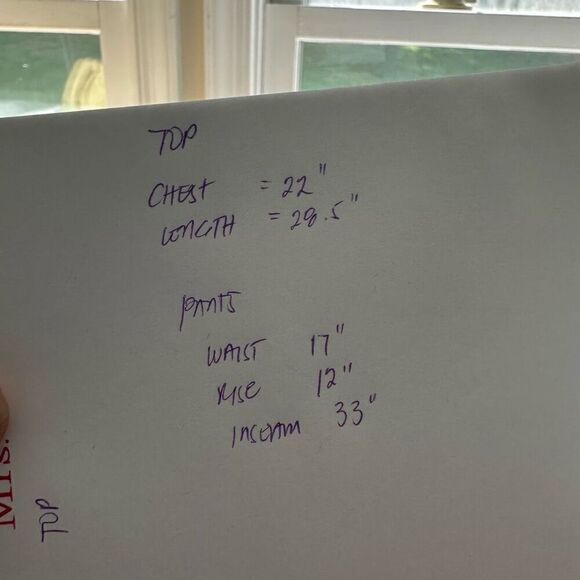 TOP
CHEST = 22"
LENGTH = 28.5"
PANTS
WAIST 17"
RISE 12"
INSEAM 33"
Mrs.
TOP